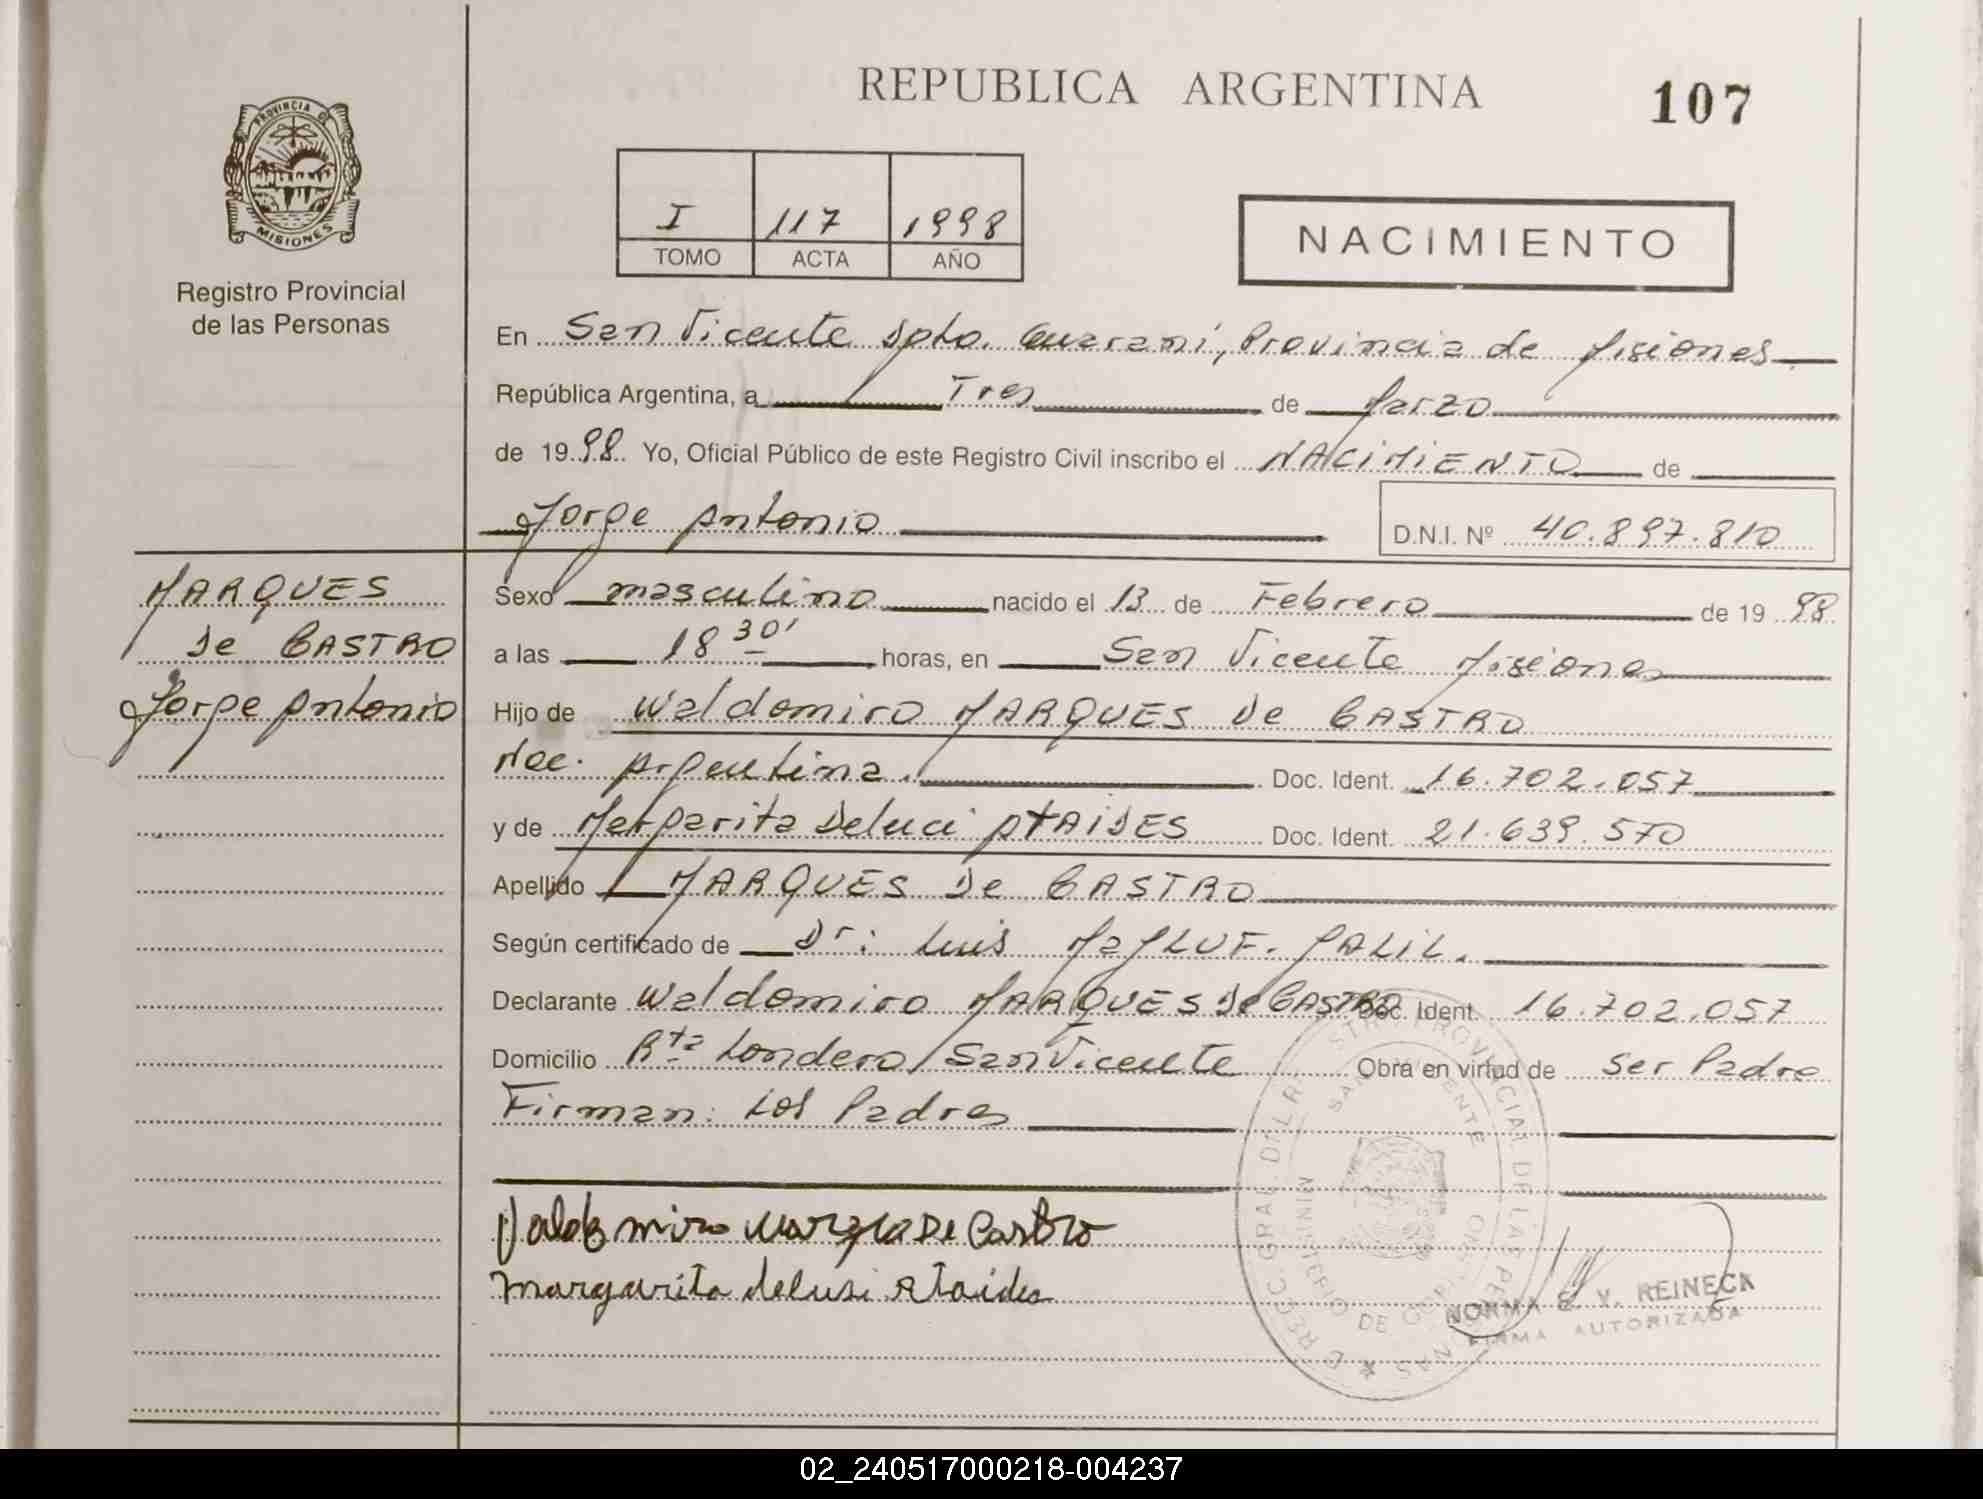 REPUBLICA ARGENTINA
107
PROVINCIA DE
MISIONES
Registro Provincial
de las Personas
I 117 1998
TOMO ACTA AÑO
NACIMIENTO
En San Vicente Dpto. Guaraní, Provincia de Misiones
República Argentina, a Tres de Marzo
de 1998 Yo, Oficial Público de este Registro Civil inscribo el NACIMIENTO de
Jorge Antonio D.N.I. Nº 40.897.810
MARQUES
de CASTRO
Jorge Antonio
Sexo masculino nacido el 13 de Febrero de 1998
a las 18 30' horas, en San Vicente Misiones
Hijo de Waldomiro MARQUES de CASTRO
Nac. Argentina. Doc. Ident. 16.702.057
y de Margarita Deluci AtAIDES Doc. Ident. 21.639.570
Apellido MARQUES de CASTRO
Según certificado de Dr: Luis JALIL.
Declarante Waldomiro MARQUES de CASTRO Doc. Ident. 16.702.057
Domicilio Rta Londero San Vicente Obra en virtud de ser Padre
Firman: Los Padres
Margarita delusi Ataides
SAN VICENTE
MINISTERIO DE GOBIERNO
NORMA E. V. REINECK
FIRMA AUTORIZADA
02_240517000218-004237